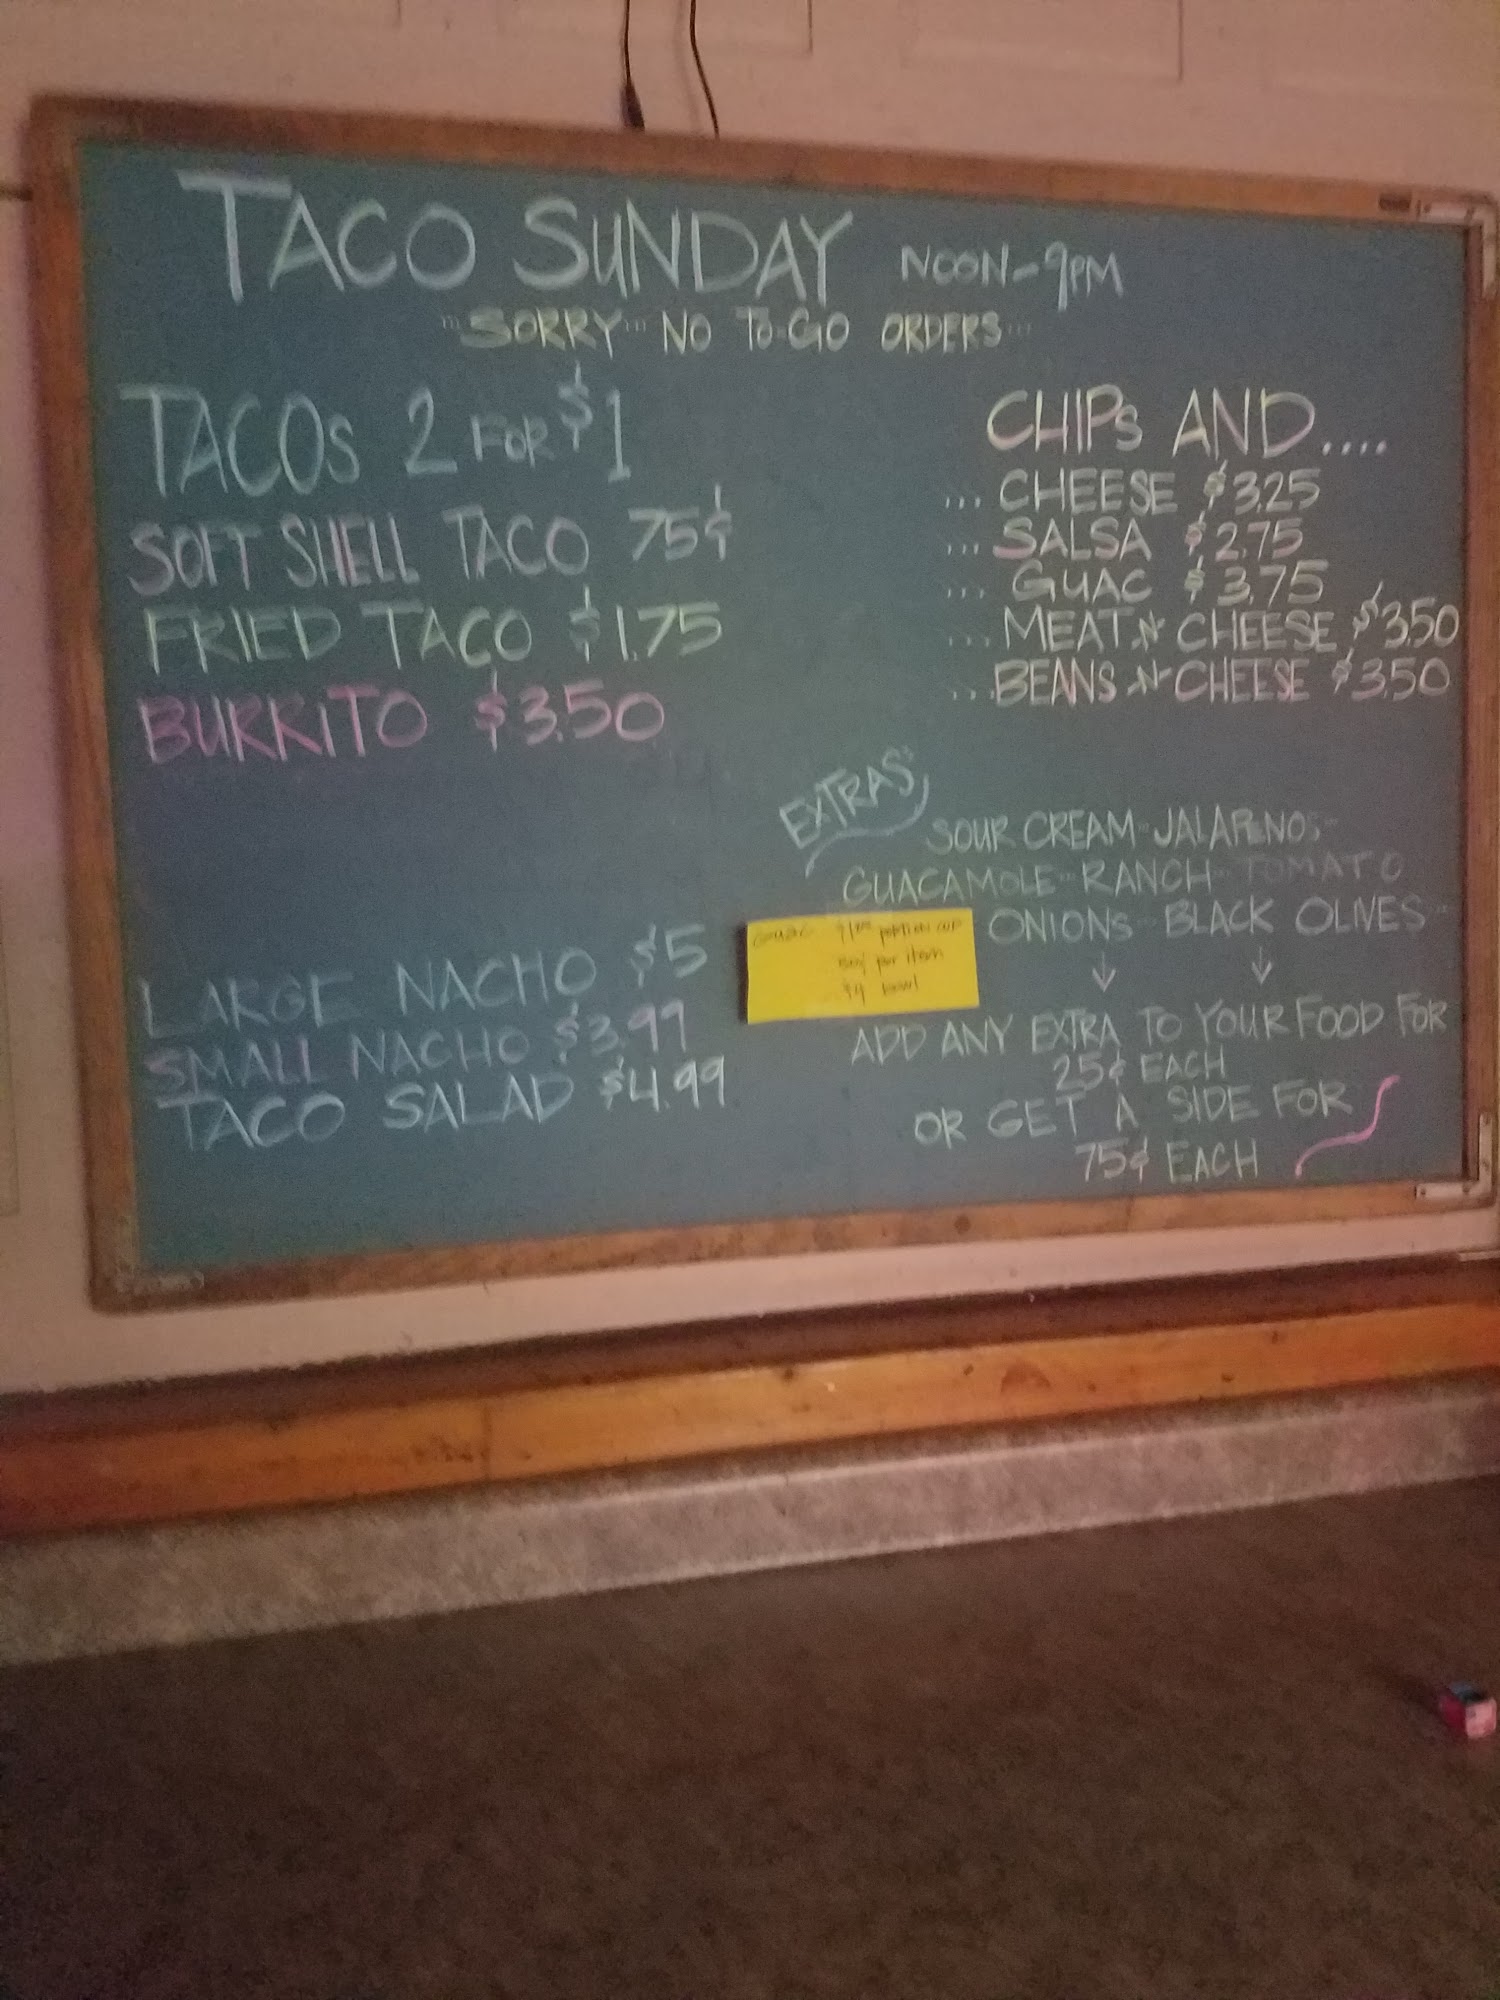 TACO SUNDAY NOON-9PM
"SORRY" NO TO-GO ORDERS...
TACOS 2 FOR $1
SOFT SHELL TACO 75¢
FRIED TACO $1.75
BURRITO $3.50
LARGE NACHO $5
SMALL NACHO $3.99
TACO SALAD $4.99
CHIPS AND....
... CHEESE $3.25
... SALSA $2.75
... GUAC $3.75
... MEAT N CHEESE $3.50
... BEANS N CHEESE $3.50
EXTRAS
SOUR CREAM-JALAPENOS-
GUACAMOLE-RANCH-TOMATO
ONIONS-BLACK OLIVES-
GUAC portion cup
50¢ per item
$4 bowl
ADD ANY EXTRA TO YOUR FOOD FOR
25¢ EACH
OR GET A SIDE FOR
75¢ EACH